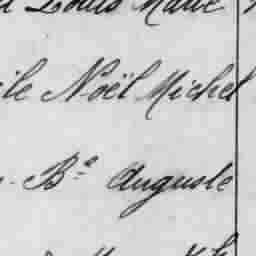 Louis Marie
ile Noël Michel
Bte Auguste